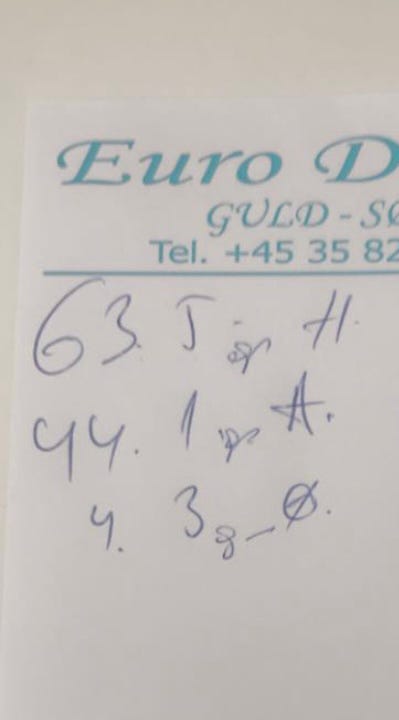 Euro D
GULD - SØ
Tel. +45 35 82
63. 5 gr H.
44. 1 gr A.
4. 3 g Ø.